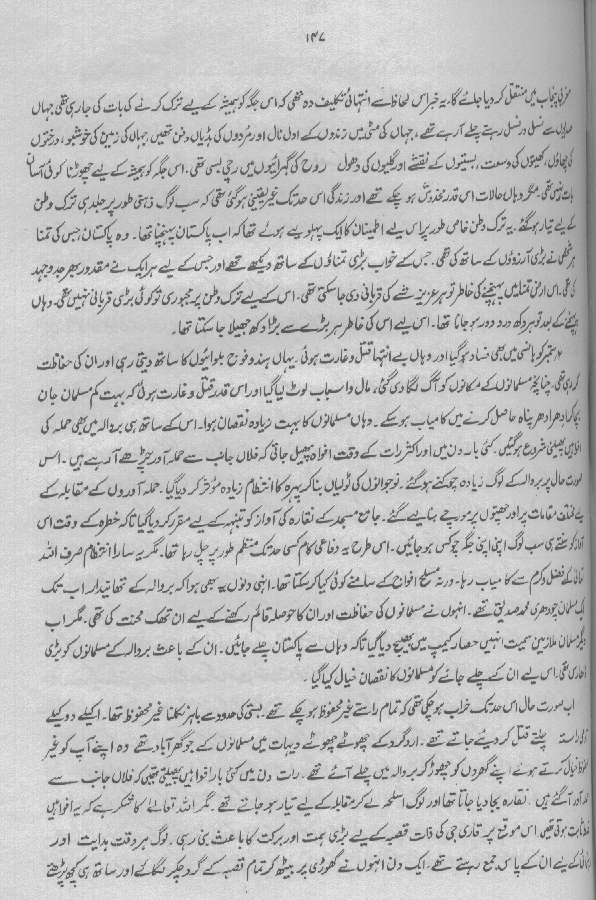 ۱۴۷
مغربی پنجاب میں منتقل کر دیا جائے گا۔ یہ خبر اس لحاظ سے انتہائی تکلیف دہ تھی کہ اس جگہ کو ہمیشہ کے لیے ترک کرنے کی بات کی جا رہی تھی جہاں
صدیوں سے نسل در نسل رہتے چلے آ رہے تھے، جہاں کی مٹی میں زندوں کے اول نال اور مُردوں کی ہڈیاں دفن تھیں جہاں کی زمین کی خوشبو، درختوں
کی چھاؤں، کھیتوں کی وسعت، بستیوں کے نقشے اور گلیوں کی دھول روح کی گہرائیوں میں رچی بسی تھی۔ اس جگہ کو ہمیشہ کے لیے چھوڑنا کوئی آسان
بات نہیں تھی۔ مگر وہاں حالات اس قدر مخدوش ہو چکے تھے اور زندگی اس حد تک غیر یقینی ہو گئی تھی کہ سب لوگ ذہنی طور پر جلد ہی ترک وطن
کے لیے تیار ہو گئے۔ یہ ترک وطن خاص طور پر اس لیے اطمینان کا ایک پہلو لیے ہوئے تھا کہ اب پاکستان پہنچنا تھا۔ وہ پاکستان جس کی تمنا
ہر شخص نے بڑی آرزوؤں کے ساتھ کی تھی۔ جس کے خواب بڑی تمناؤں کے ساتھ دیکھے تھے اور جس کے لیے ہر ایک نے مقدور بھر جدوجہد
کی تھی۔ اس ارض تمنا میں پہنچنے کی خاطر تو ہر عزیز شے کی قربانی دی جا سکتی تھی۔ اس کے لیے ترک وطن پر مجبوری تو کوئی بڑی قربانی نہیں تھی۔ وہاں
پہنچنے کے بعد تو ہر دکھ درد دور ہو جانا تھا۔ اس لیے اس کی خاطر ہر بڑے سے بڑا دکھ جھیلا جا سکتا تھا۔
ستمبر کو ہانسی میں بھی فساد ہو گیا اور وہاں بے انتہا قتل و غارت ہوئی۔ یہاں ہندو فوج بلوائیوں کا ساتھ دیتی رہی اور ان کی حفاظت
کر رہی تھی۔ چنانچہ مسلمانوں کے مکانوں کو آگ لگا دی گئی، مال و اسباب لوٹ لیا گیا اور اس قدر قتل و غارت ہوئی کہ بہت کم مسلمان جان
بچا کر ادھر ادھر پناہ حاصل کرنے میں کامیاب ہو سکے۔ وہاں مسلمانوں کا بہت زیادہ نقصان ہوا۔ اس کے ساتھ ہی بروالہ میں بھی حملہ کی
افواہیں پھیلنی شروع ہو گئیں۔ کئی بار دن میں اور اکثر رات کے وقت افواہ پھیل جاتی کہ فلاں جانب سے حملہ آور چڑھے آ رہے ہیں۔ اس
صورت حال پر بروالہ کے لوگ زیادہ چوکنے ہو گئے۔ نوجوانوں کی ٹولیاں بنا کر پہرہ کا انتظام زیادہ مؤثر کر دیا گیا۔ حملہ آوروں کے مقابلہ کے
لیے مختلف مقامات پر اور چھتوں پر مورچے بنا لیے گئے۔ جامع مسجد کے نقارہ کی آواز کو تنبیہہ کے لیے مقرر کر دیا گیا تاکہ خطرہ کے وقت اس
آواز کو سنتے ہی سب لوگ اپنی اپنی جگہ چوکس ہو جائیں۔ اس طرح یہ دفاعی کام کسی حد تک منظم طور پر چل رہا تھا۔ مگر یہ سارا انتظام صرف اللہ
تعالیٰ کے فضل و کرم سے کامیاب رہا۔ ورنہ مسلح افواج کے سامنے کوئی کیا کر سکتا تھا۔ انہی دنوں یہ بھی ہوا کہ بروالہ کے تھانیدار اب تک
ایک مسلمان چودھری محمد صدیق تھے۔ انہوں نے مسلمانوں کی حفاظت اور ان کا حوصلہ قائم رکھنے کے لیے ان تھک محنت کی تھی۔ مگر اب
دیگر مسلمان ملازمین سمیت انہیں حصار کیمپ میں بھیج دیا گیا تاکہ وہاں سے پاکستان چلے جائیں۔ ان کے باعث بروالہ کے مسلمانوں کو بڑی
ڈھارس تھی۔ اس لیے ان کے چلے جانے کو مسلمانوں کا نقصان خیال کیا گیا۔
اب صورت حال اس حد تک خراب ہو چکی تھی کہ تمام راستے غیر محفوظ ہو چکے تھے۔ بستی کی حدود سے باہر نکلنا غیر محفوظ تھا۔ اکیلے دوکیلے
راستہ چلتے قتل کر دیئے جاتے تھے۔ ارد گرد کے چھوٹے چھوٹے دیہات میں مسلمانوں کے جو گھر آباد تھے وہ اپنے آپ کو غیر
محفوظ خیال کرتے ہوئے اپنے گھروں کو چھوڑ کر بروالہ میں چلے آئے تھے۔ رات دن میں کئی بار افواہیں پھیلتی تھیں کہ فلاں جانب سے
حملہ آور آ گئے ہیں۔ نقارہ بجا دیا جاتا تھا اور لوگ اسلحہ لے کر مقابلہ کے لیے تیار ہو جاتے تھے۔ مگر اللہ تعالیٰ کا شکر ہے کہ یہ افواہیں
غلط ثابت ہوتی تھیں۔ اس موقع پر قاری جی کی ذات قصبہ کے لیے بڑی ہمت اور برکت کا باعث بنی رہی۔ لوگ ہر وقت ہدایت اور
کے لیے ان کے پاس جمع رہتے تھے۔ ایک دن انہوں نے گھوڑی پر بیٹھ کر تمام قصبہ کے گرد چکر لگائے اور ساتھ ہی کچھ پڑھتے